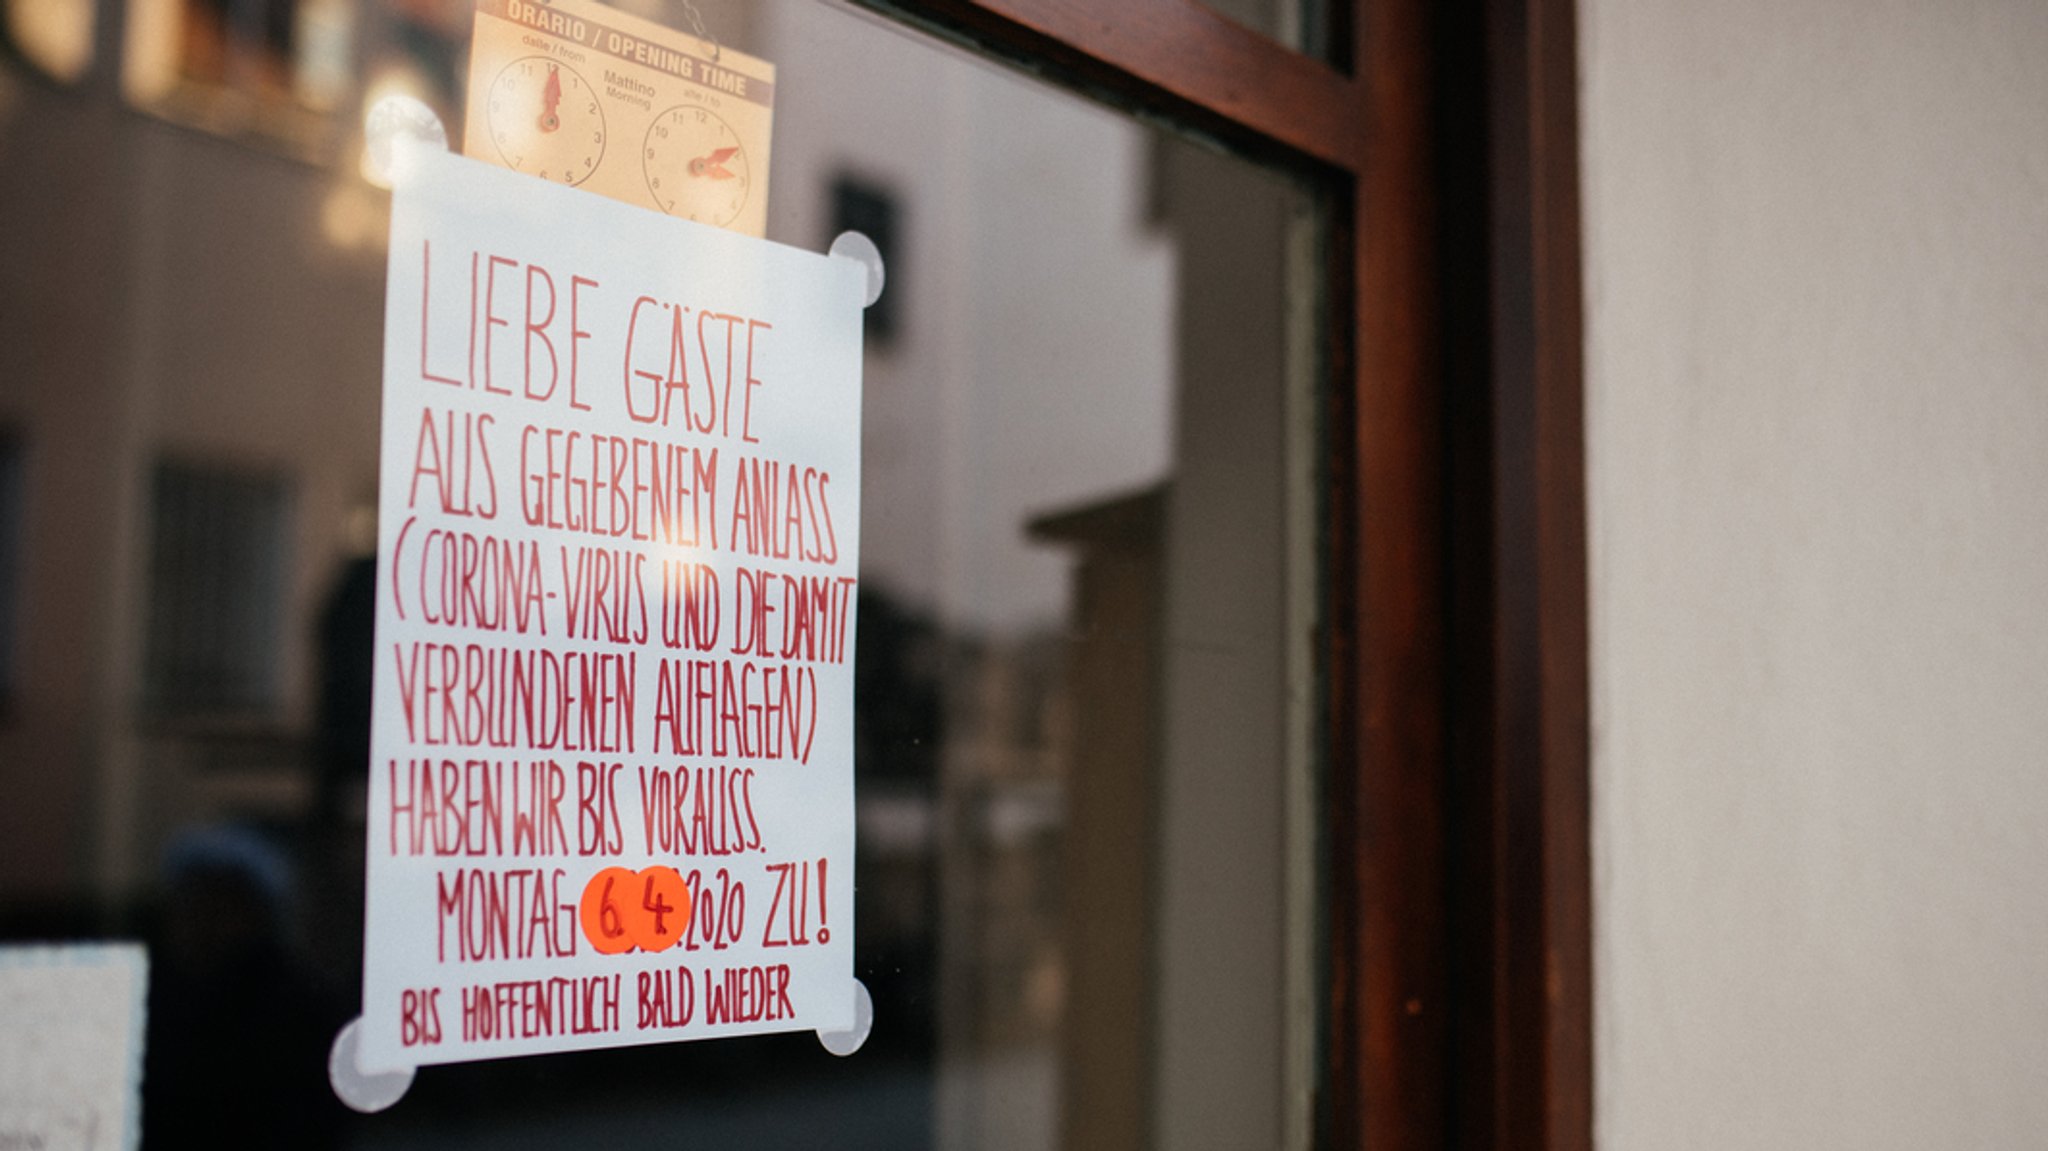 ORARIO / OPENING TIME
dalle / from
Mattino
Morning
alle / to
11 12 1
10 2
9 3
8 4
7 6 5
11 12 1
10 2
9 3
8 4
7 5
LIEBE GÄSTE
AUS GEGEBENEM ANLASS
(CORONA-VIRUS UND DIE DAMIT
VERBUNDENEN AUFLAGEN)
HABEN WIR BIS VORAUSS.
MONTAG 6. 4. 2020 ZU!
BIS HOFFENTLICH BALD WIEDER